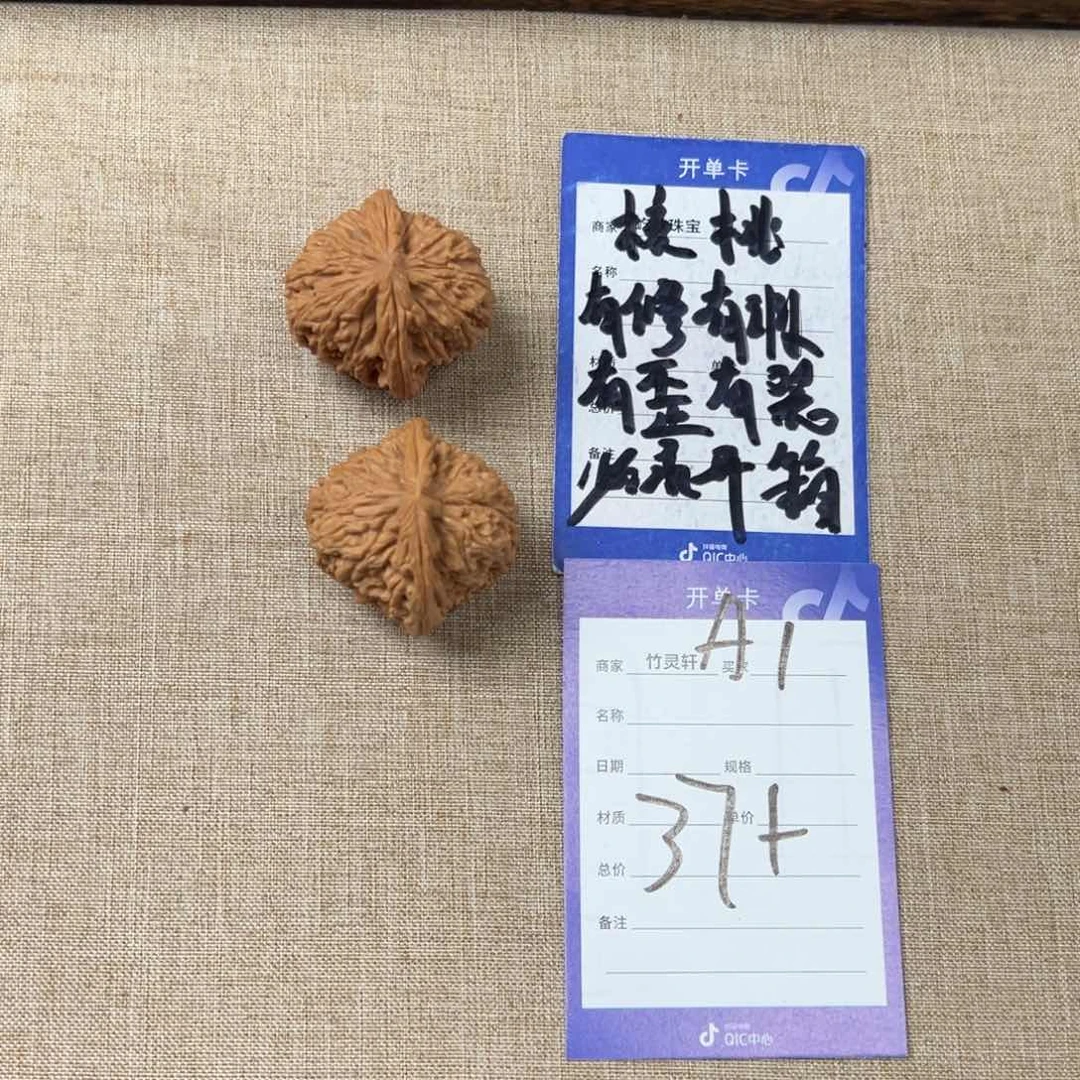 开单卡
核桃
商家 珠宝
名称
有修有瑕
有歪有裂
备注
抖音电商
QIC中心
开单卡
A1
商家 竹灵轩 买家
名称
日期 规格
材质 单价
37+
总价
备注
抖音电商
QIC中心